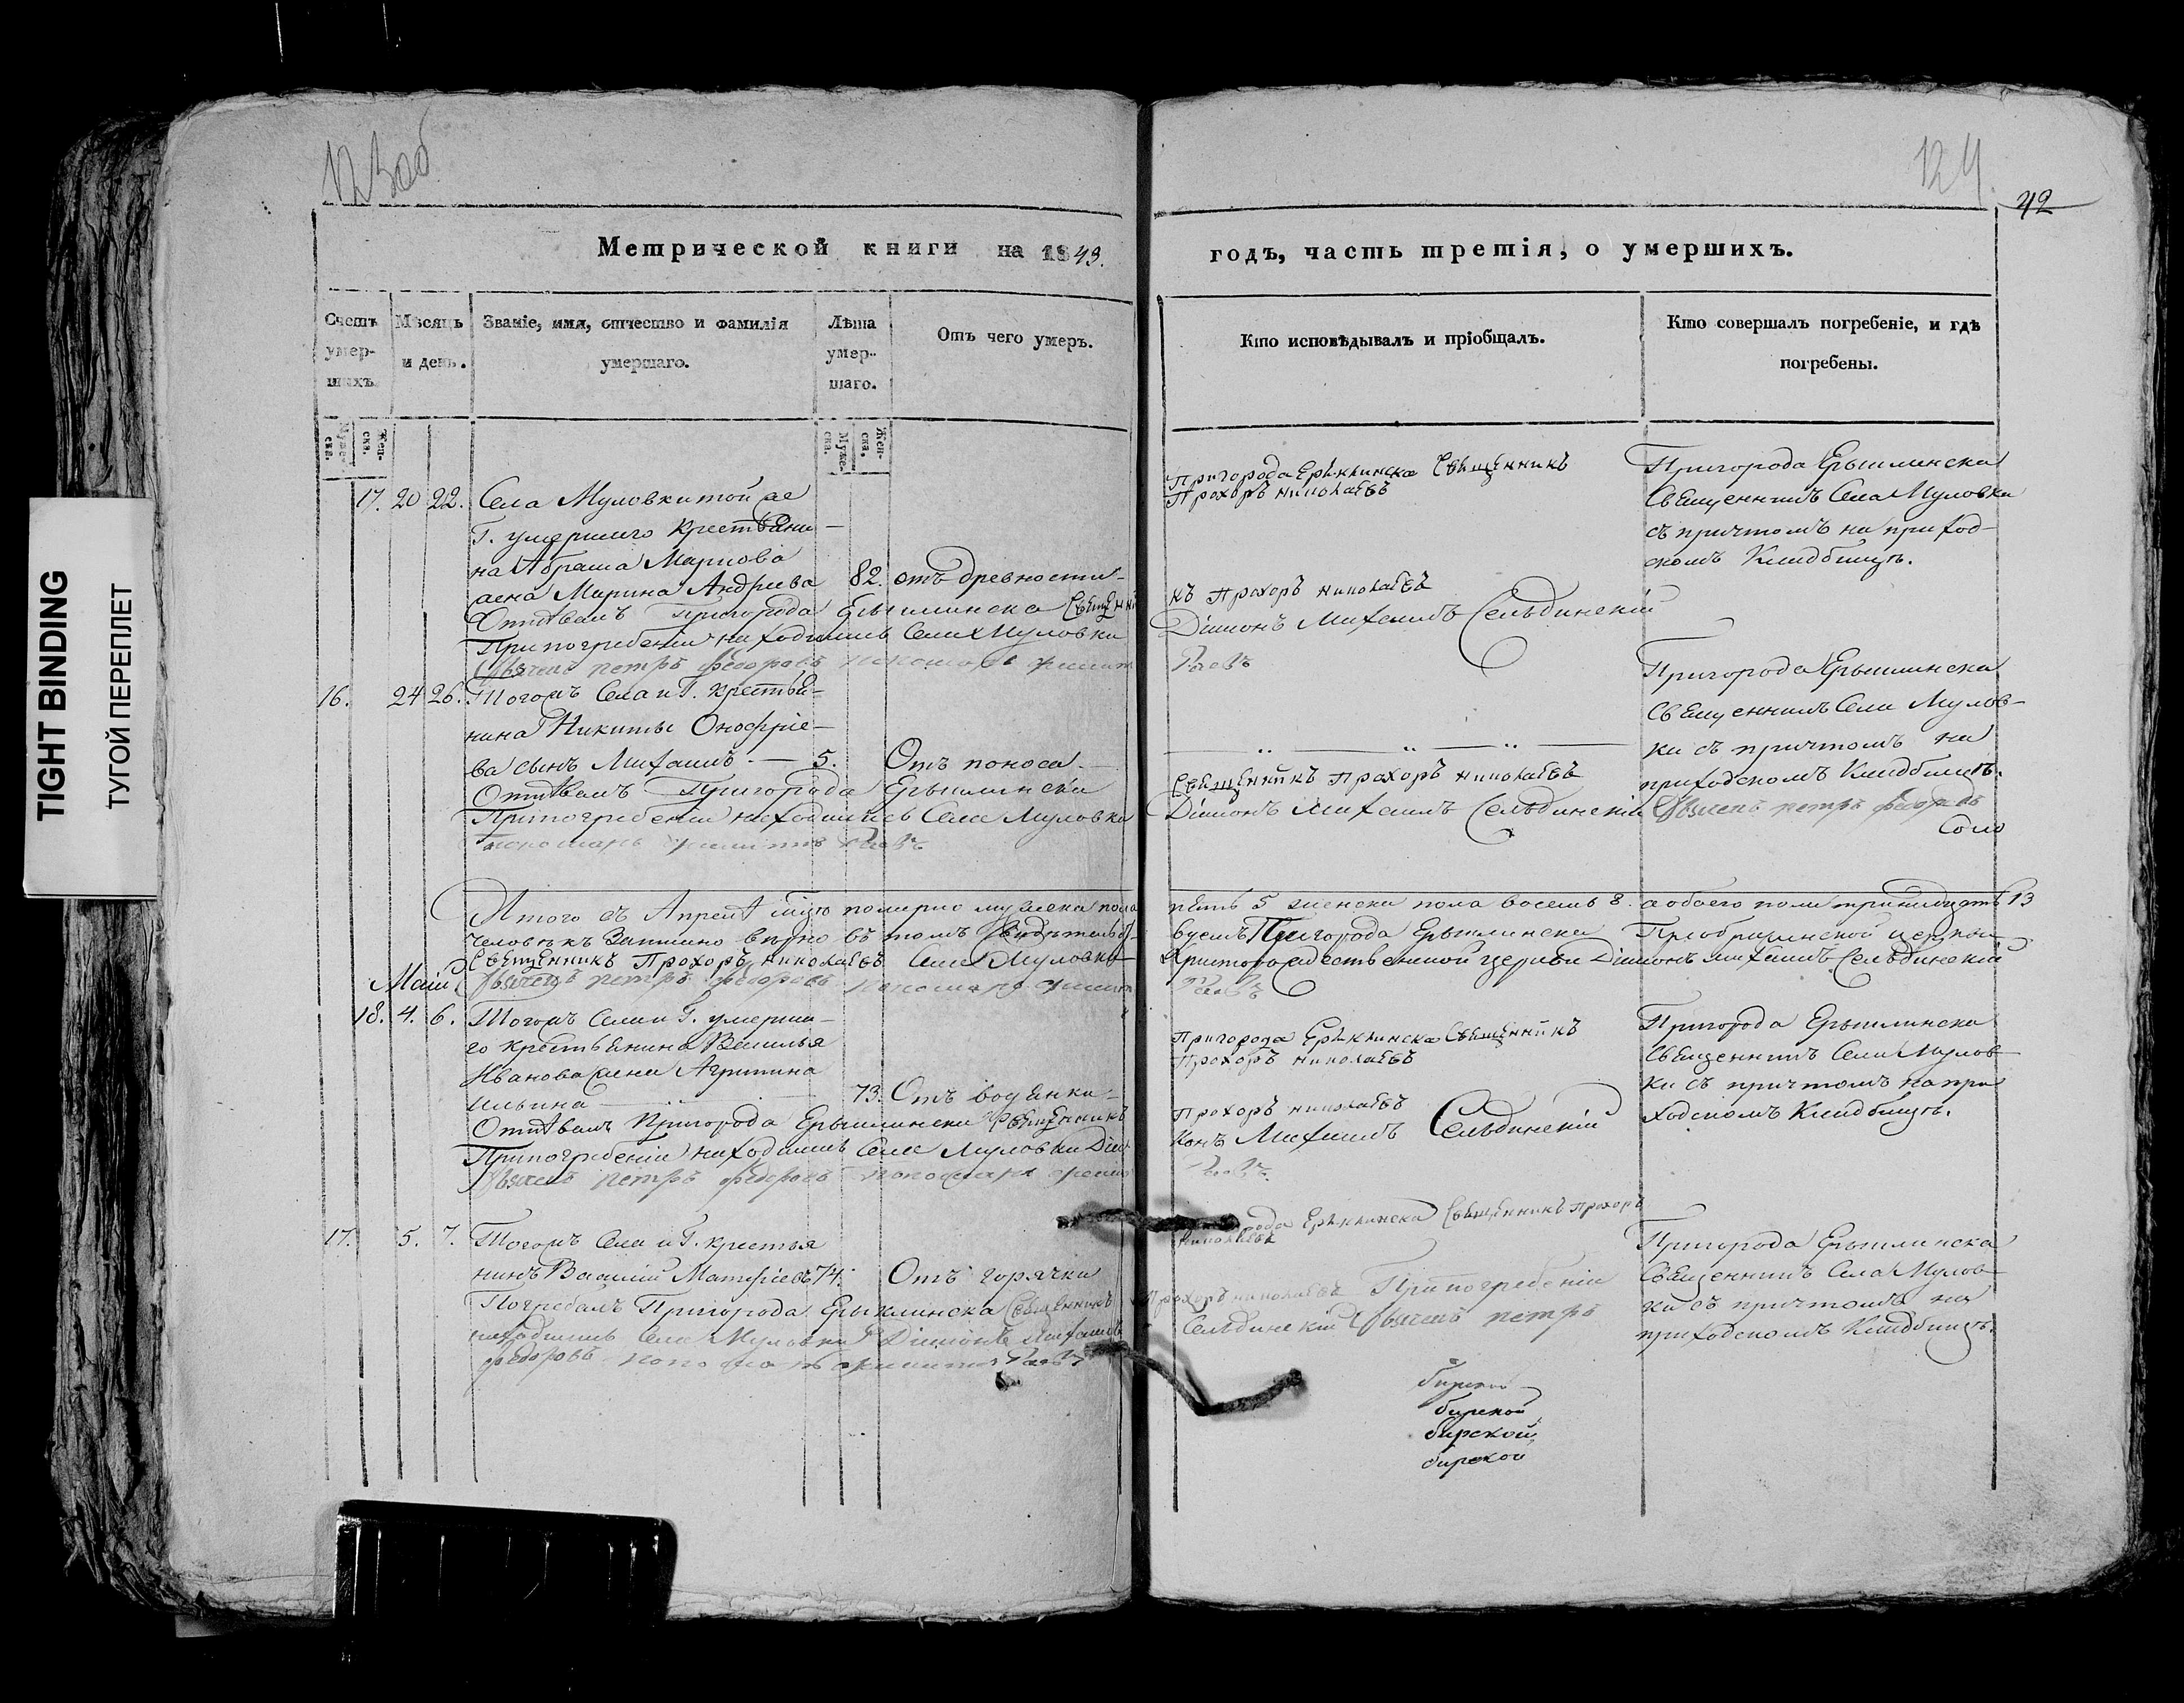 TIGHT BINDING
ТУГОЙ ПЕРЕПЛЕТ
123об
124.
42
Метрической книги на 1843.
годъ, часть третія, о умершихъ.
Счетъ умер-шихъ.
Мѣсяцъ и день.
Званіе, имя, отчество и фамилія умершаго.
Лѣта умер-шаго.
Отъ чего умеръ.
Кто исповѣдывалъ и пріобщалъ.
Кто совершалъ погребеніе, и гдѣ погребены.
Муже-ска.
Жен-ска.
Муже-ска.
Жен-ска.
17. 20 22. Села Муловки той же
Г. умершаго крестьяни-
на Абрама Маркова
жена Марина Андреева 82. отъ древности
Отпѣвалъ Пригорода Ерыклинска Священни
При погребеніи находились Села Муловки
Дьячекъ петръ федоровъ пономарь
Пригорода Ерыклинска Священникъ
Прохоръ николаевъ
къ Прохоръ николаевъ
Діаконъ Михаилъ Сельдинскій
Пригорода Ерыклинска
Священникъ Села Муловки
съ причтомъ на приход-
скомъ Кладбищѣ.
16. 24 26. Тогожъ Села и Г. крестья-
нина Никиты Онофріе-
ва сынъ Михаилъ. — 5. Отъ поноса.
Отпѣвалъ Пригорода Ерыклинска
При погребеніи находились Села Муловки
Пономарь
Священникъ Прохоръ николаевъ
Діаконъ Михаилъ Сельдинскій Дьячекъ петръ федоровъ
Пригорода Ерыклинска
Священникъ Села Мулов-
ки съ причтомъ на
приходскомъ Кладбищѣ.
Итого въ Апрелѣ мцѣ померло мужеска пола
пять 5 женска пола восемь 8. а обоего пола тринадцать 13
человѣкъ Записано вѣрно въ томъ Свидѣтельст-
вуемъ Пригорода Ерыклинска Преображенской церкви
Священникъ Прохоръ николаевъ Села Муловки
Христорождественской церкви Діаконъ михаилъ Сельдинскій
Дьячекъ петръ федоровъ пономарь
Маій
18. 4. 6. Тогожъ Села и Г. умерша-
го крестьянина Василья
Иванова жена Агрипина
Ильина 73. Отъ водянки
Отпѣвалъ Пригорода Ерыклинска Священникъ
При погребеніи находились Села Муловки Діа
Дьячекъ петръ федоровъ пономарь
Пригорода Ерыклинска Священникъ
Прохоръ николаевъ
Прохоръ николаевъ
конъ Михаилъ Сельдинскій
Пригорода Ерыклинска
Священникъ Села Мулов-
ки съ причтомъ на при
ходскомъ Кладбищѣ.
17. 5. 7. Тогожъ Села и Г. крестья
нинъ Василій Матфіевъ 74. Отъ горячки
Погребалъ Пригорода Ерыклинска Священникъ
находились Села Муловки Діаконъ Михаилъ
федоровъ пономарь
Пригорода Ерыклинска Священникъ Прохоръ
николаевъ
Прохоръ николаевъ При погребеніи
Сельдинскій Дьячекъ петръ
Пригорода Ерыклинска
Священникъ Села Мулов-
ки съ причтомъ на
приходскомъ Кладбищѣ.
бирской
бирской
бирской
бирской